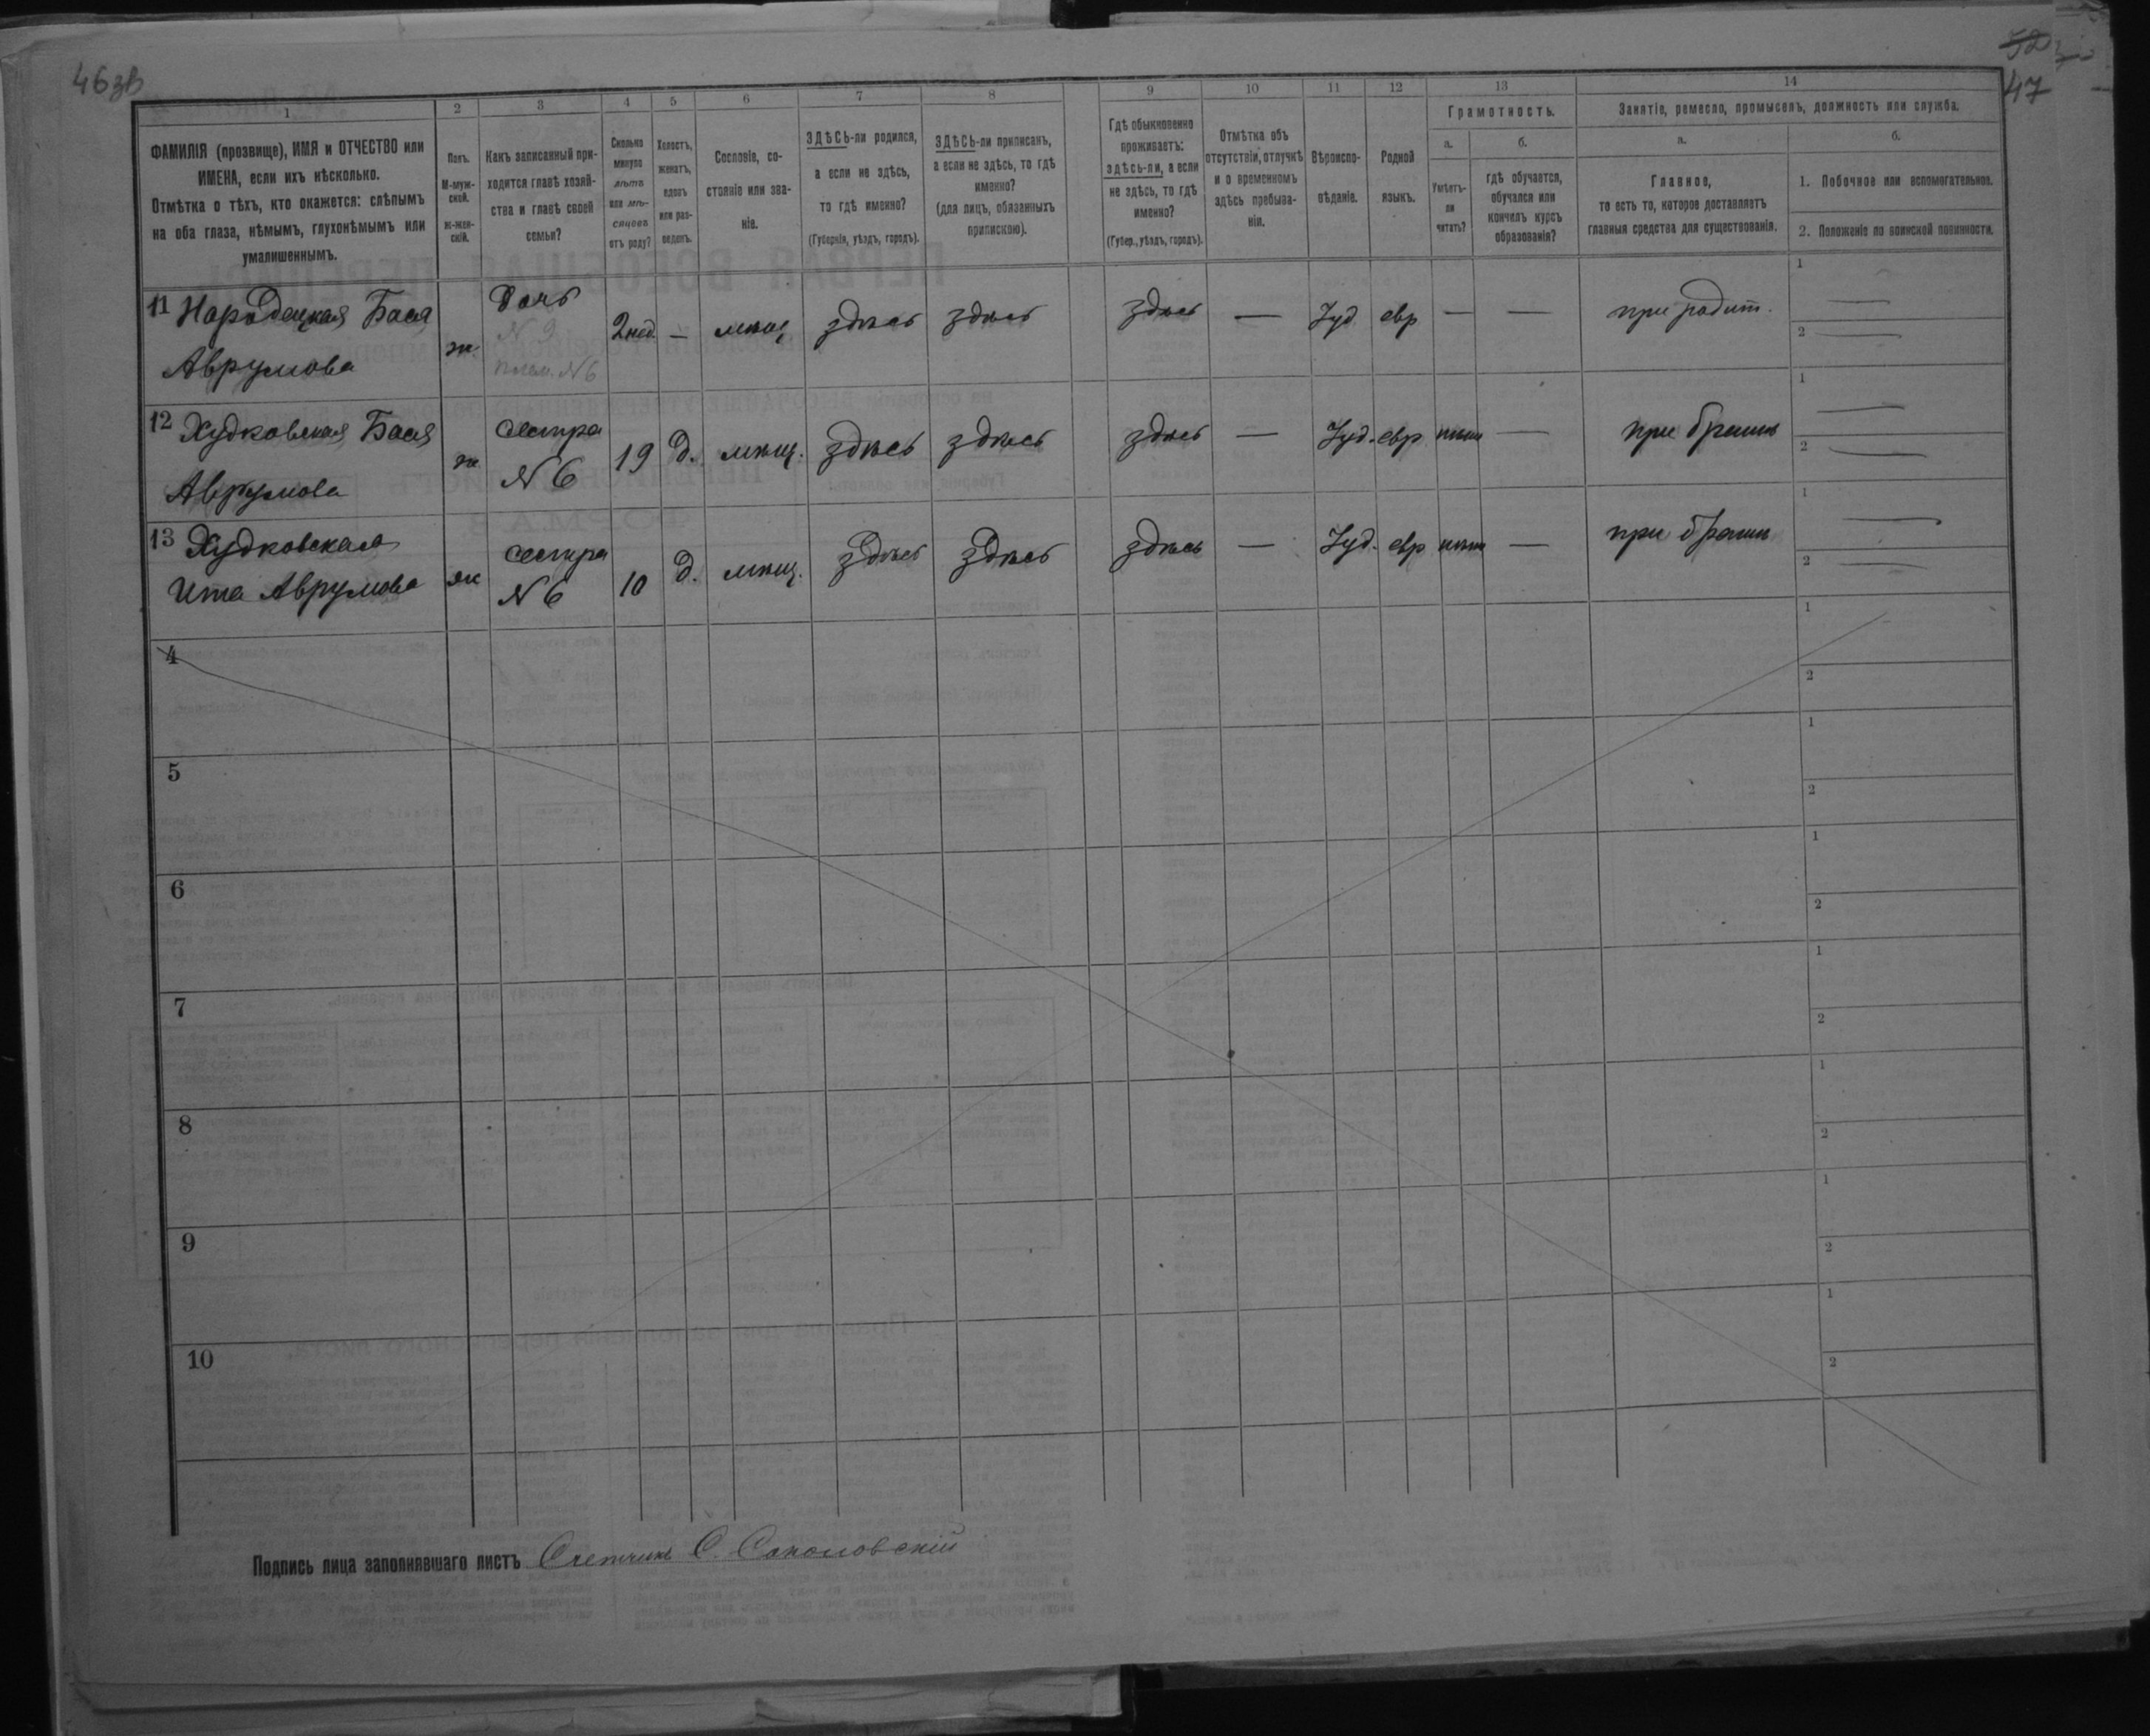 46зв
52
47
1
2
3
4
5
6
7
8
9
10
11
12
13
14
ФАМИЛІЯ (прозвище), ИМЯ и ОТЧЕСТВО или
ИМЕНА, если ихъ нѣсколько.
Отмѣтка о тѣхъ, кто окажется: слѣпымъ
на оба глаза, нѣмымъ, глухонѣмымъ или
умалишеннымъ.
Полъ.
М-муж-
ской.
Ж-жен-
скій.
Какъ записанный при-
ходится главѣ хозяй-
ства и главѣ своей
семьи?
Сколько
минуло
лѣтъ
или мѣ-
сяцевъ
отъ роду?
Холостъ,
женатъ,
вдовъ
или раз-
веденъ.
Сословіе, со-
стояніе или зва-
ніе.
ЗДѢСЬ-ли родился,
а если не здѣсь,
то гдѣ именно?
(Губернія, уѣздъ, городъ).
ЗДѢСЬ-ли приписанъ,
а если не здѣсь, то гдѣ
именно?
(для лицъ, обязанныхъ
припискою).
Гдѣ обыкновенно
проживаетъ:
здѣсь-ли, а если
не здѣсь, то гдѣ
именно?
(Губер., уѣздъ, городъ).
Отмѣтка объ
отсутствіи, отлучкѣ
и о временномъ
здѣсь пребыва-
ніи.
Вѣроиспо-
вѣданіе.
Родной
языкъ.
Грамотность.
а.
Умѣетъ-
ли
читать?
б.
гдѣ обучается,
обучался или
кончилъ курсъ
образованія?
Занятіе, ремесло, промыселъ, должность или служба.
а.
Главное,
то есть то, которое доставляетъ
главныя средства для существованія.
б.
1. Побочное или вспомогательное.
2. Положеніе по воинской повинности.
11 Народецкая Бася Аврумова ж дочь N 9 плем. N6 2 нед. — мѣщ здѣсь здѣсь здѣсь — Іуд евр — — при родит. 1 — 2 —
12 Худковская Бася Аврумова ж сестра N 6 19 д. мѣщ. здѣсь здѣсь здѣсь — Іуд. евр нѣтъ — при братѣ 1 — 2 —
13 Худковская Ита Аврумова ж сестра N 6 10 д. мѣщ. здѣсь здѣсь здѣсь — Іуд. евр нѣтъ — при братѣ 1 — 2 —
4 1 2
5 1 2
6 1 2
7 1 2
8 1 2
9 1 2
10 1 2
Подпись лица заполнявшаго листъ Счетчикъ С. Соколовскій